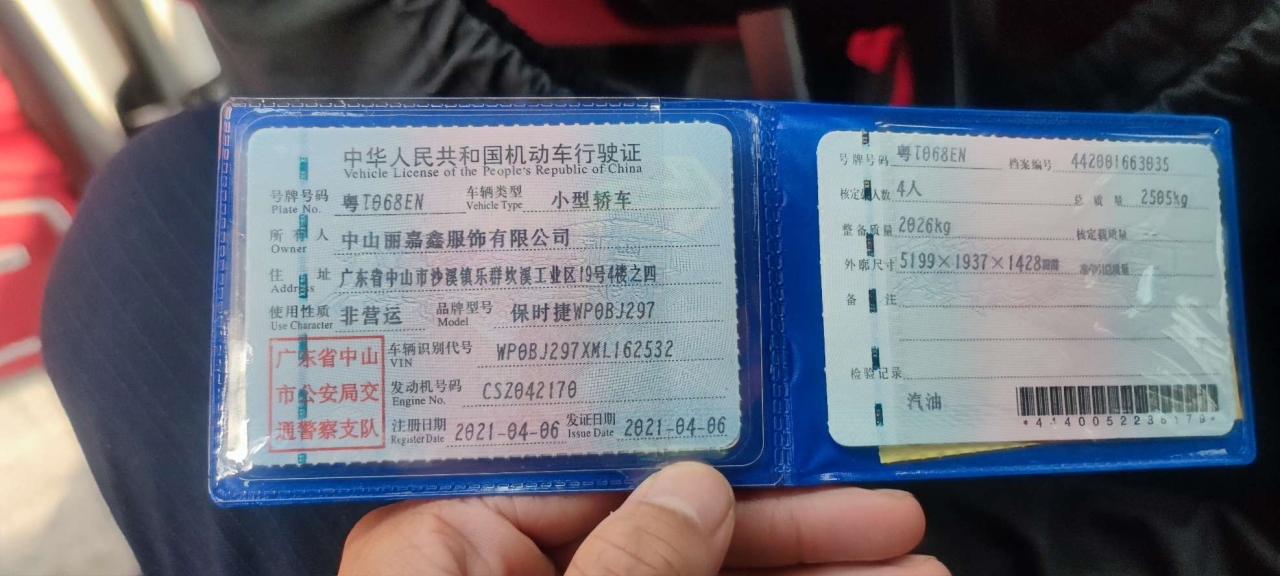 中华人民共和国机动车行驶证
Vehicle License of the People's Republic of China
号牌号码 粤T068EN 车辆类型 小型轿车
Plate No. Vehicle Type
所有人 中山丽嘉鑫服饰有限公司
Owner
住址 广东省中山市沙溪镇乐群坎溪工业区19号4楼之四
Address
使用性质 非营运 品牌型号 保时捷WP0BJ297
Use Character Model
广东省中山
市公安局交
通警察支队
车辆识别代号 WP0BJ297XML162532
VIN
发动机号码 CSZ042170
Engine No.
注册日期 2021-04-06 发证日期 2021-04-06
Register Date Issue Date
号牌号码 粤T068EN 档案编号 442001663035
核定载人数 4人 总质量 2505kg
整备质量 2026kg 核定载质量
外廓尺寸 5199×1937×1428
备注
检验记录
汽油